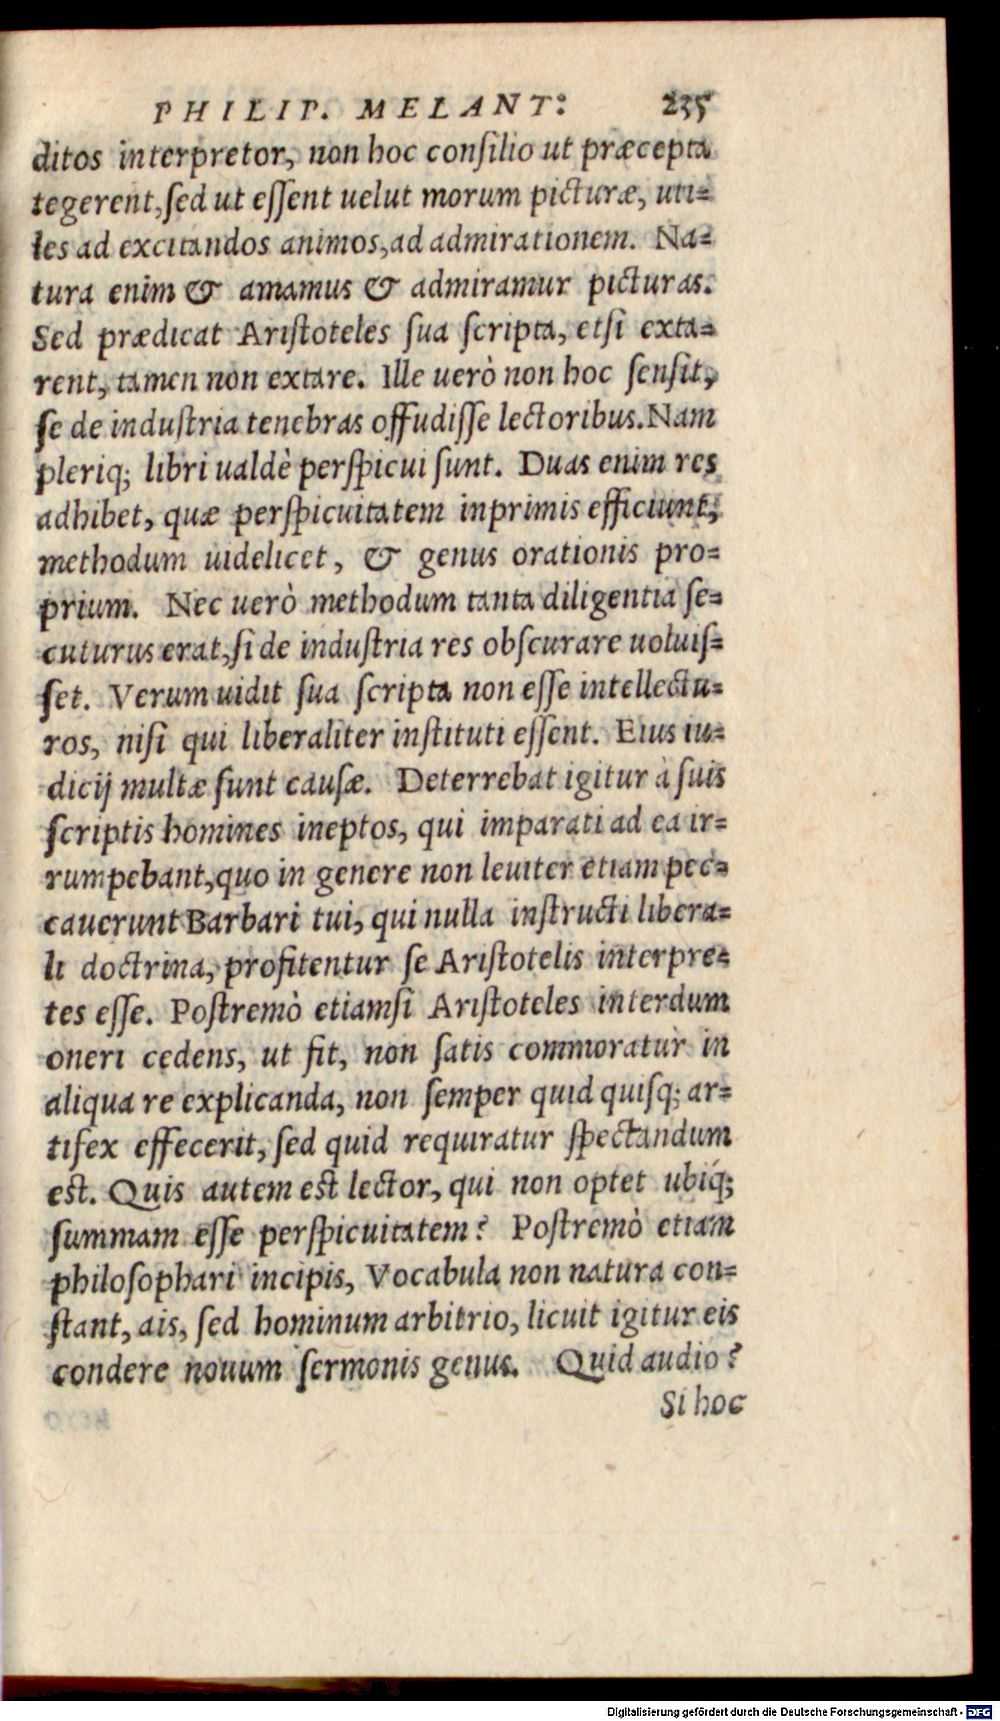 PHILIP. MELANT: 235
ditos interpretor, non hoc consilio ut præcepta
tegerent, sed ut essent uelut morum picturæ, uti=
les ad excitandos animos, ad admirationem. Na=
tura enim & amamus & admiramur picturas.
Sed prædicat Aristoteles sua scripta, etsi exta=
rent, tamen non extare. Ille uerò non hoc sensit,
se de industria tenebras offudisse lectoribus. Nam
pleriq; libri ualdè perspicui sunt. Duas enim res
adhibet, quæ perspicuitatem inprimis efficiunt,
methodum uidelicet, & genus orationis pro=
prium. Nec uerò methodum tanta diligentia se=
cuturus erat, si de industria res obscurare uoluis=
set. Verum uidit sua scripta non esse intellectu=
ros, nisi qui liberaliter instituti essent. Eius iu=
dicij multæ sunt causæ. Deterrebat igitur à suis
scriptis homines ineptos, qui imparati ad ea ir=
rumpebant, quo in genere non leuiter etiam pec=
cauerunt Barbari tui, qui nulla instructi libera=
li doctrina, profitentur se Aristotelis interpre=
tes esse. Postremò etiamsi Aristoteles interdum
oneri cedens, ut fit, non satis commoratur in
aliqua re explicanda, non semper quid quisq; ar=
tifex effecerit, sed quid requiratur spectandum
est. Quis autem est lector, qui non optet ubiq́;
summam esse perspicuitatem? Postremò etiam
philosophari incipis, Vocabula non natura con=
stant, ais, sed hominum arbitrio, licuit igitur eis
condere nouum sermonis genus. Quid audio?
Si hoc
Digitalisierung gefördert durch die Deutsche Forschungsgemeinschaft - DFG